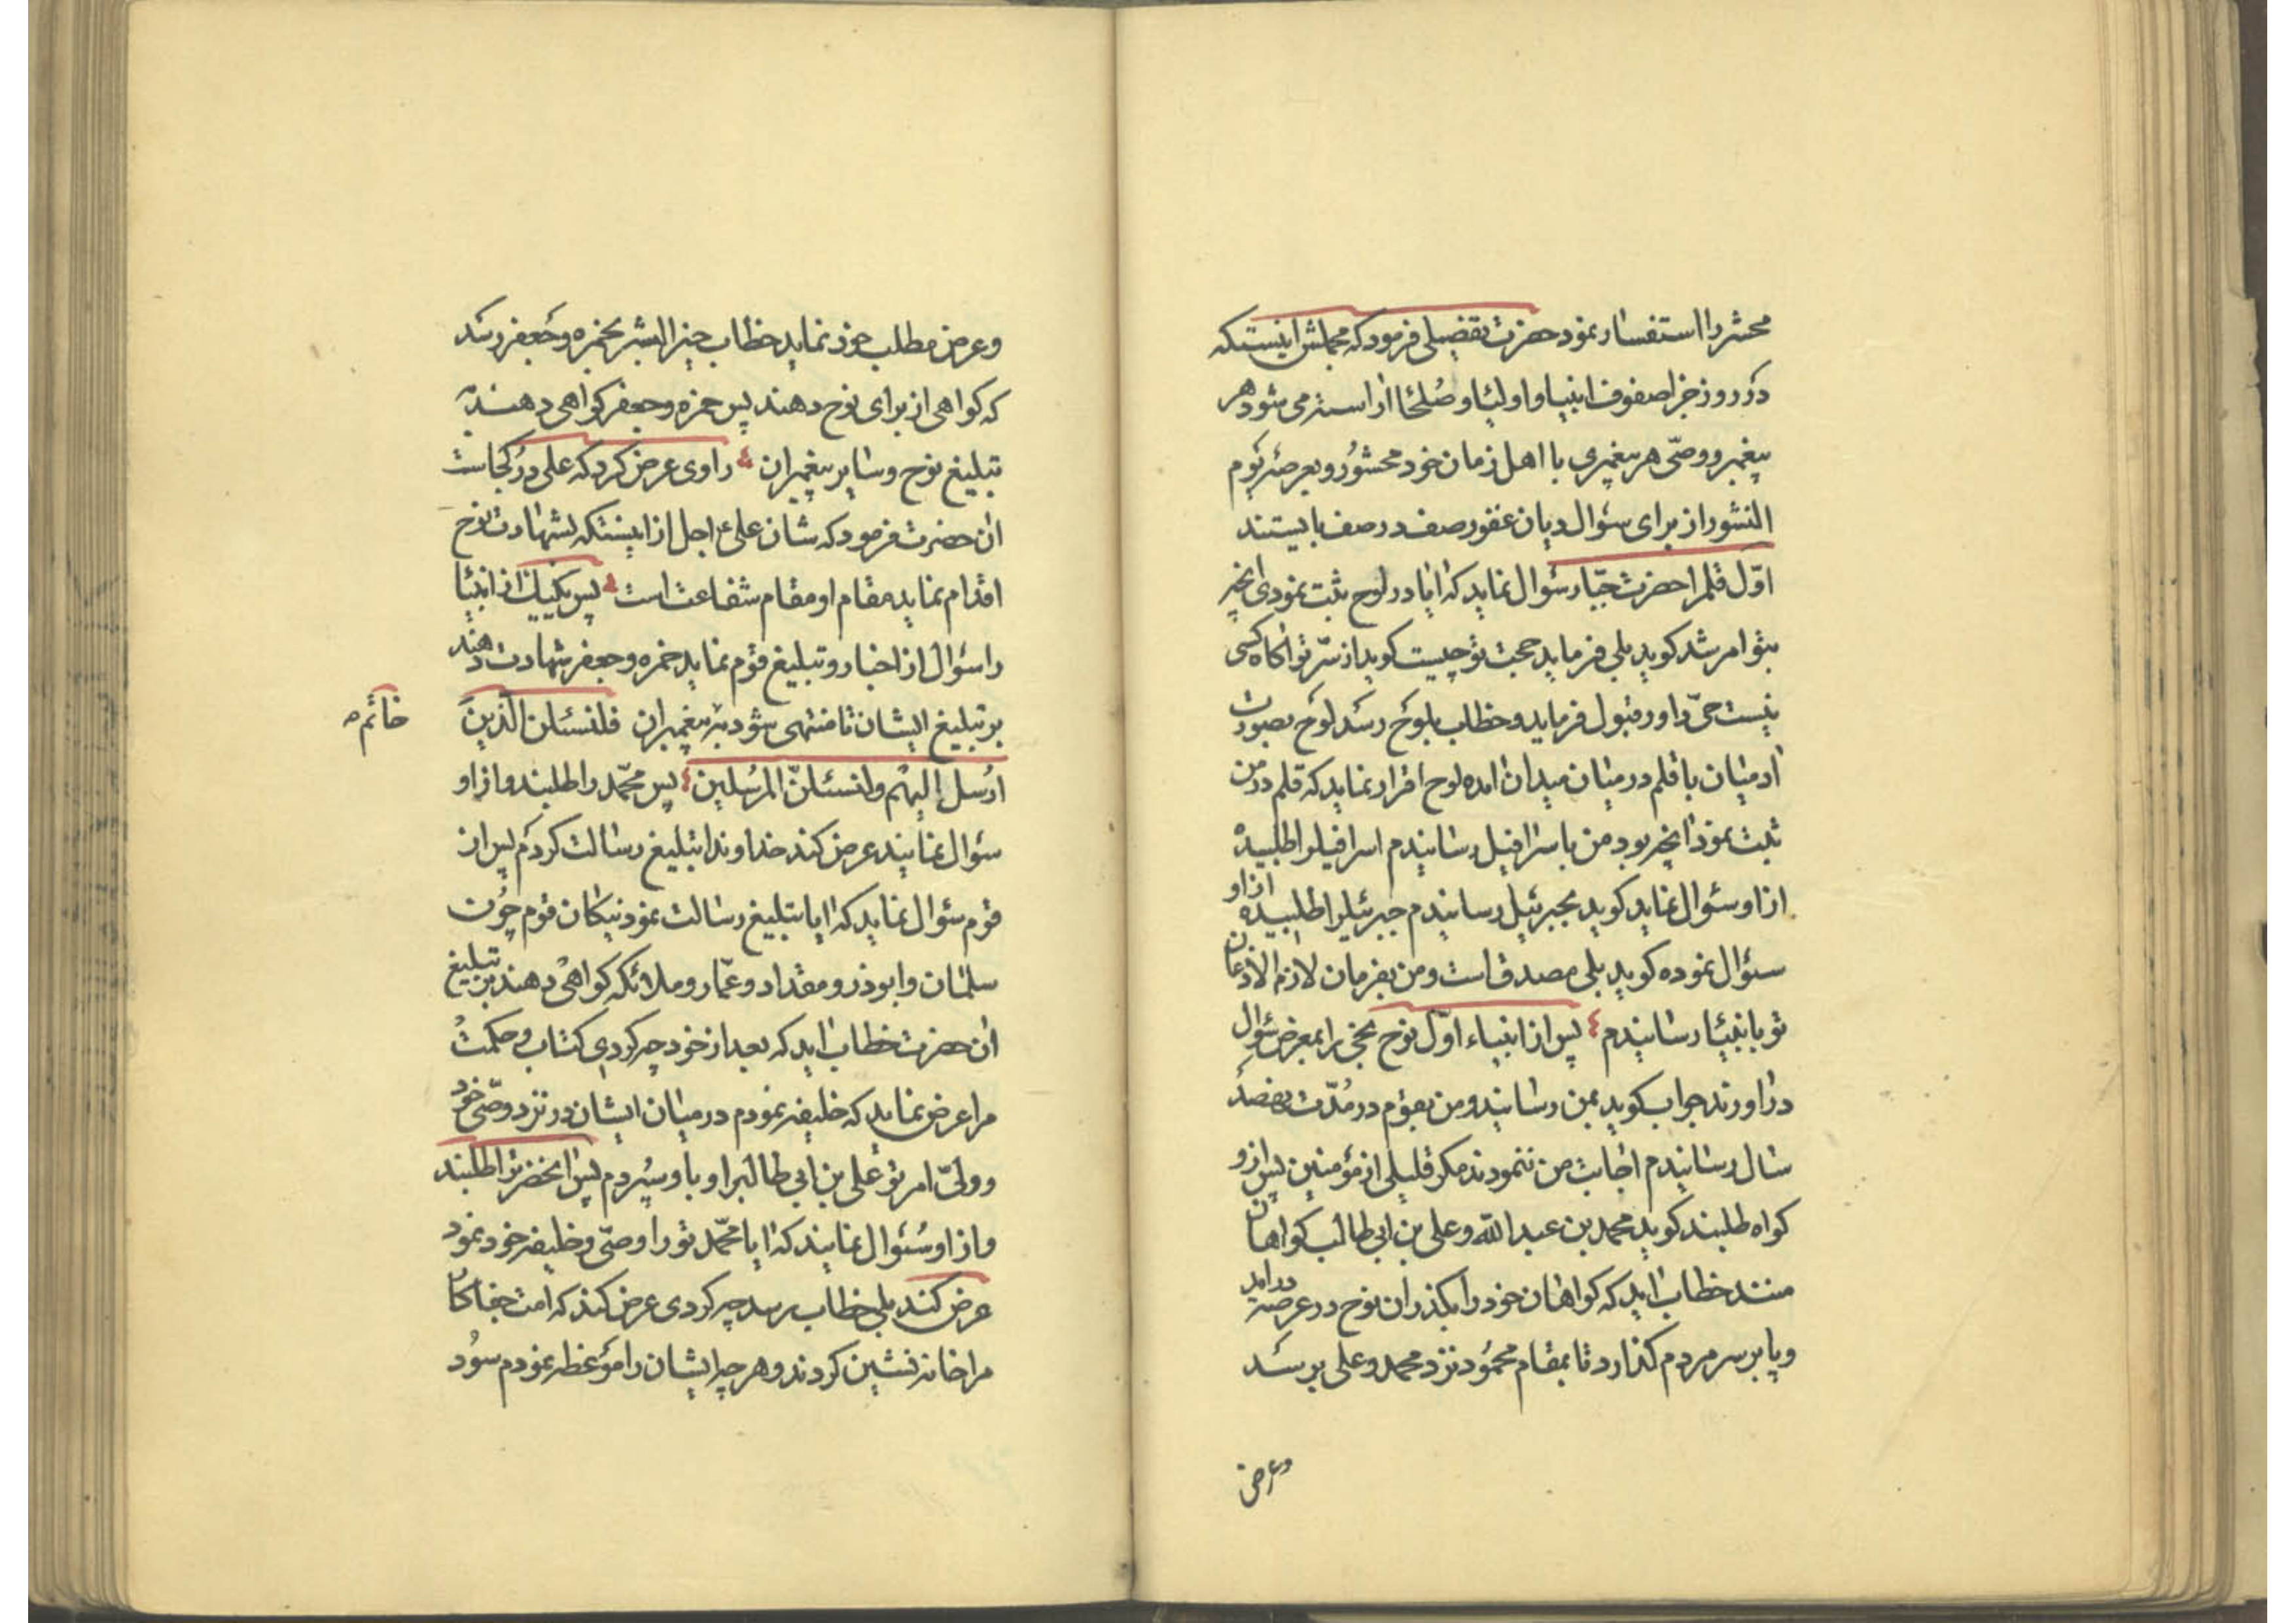 محشر را استفسار نمود حضرت تفصیلی فرمود که مجملش اینستکه
در روز جزا صفوف انبیا و اولیا و صلحا اراسته می شود هر
پیغمبر و وصّی هر پیغمبری با اهل زمان خود محشور و بعرصه یوم
النشور از برای سئوال دیان غفور صف در صف بایستند
اوّل قلمرا حضرت جبّار سئوال نماید که ایا در لوح ثبت نمودی انچه
بتو امر شد کوید بلی فرماید حجت تو چیست کوید از سرّ تو اکاه کسی
نیست حیّ داور قبول فرماید و خطاب بلوح رسد لوح بصورت
ادمیان با قلم در میان میدان امده لوح اقرار نماید که قلم در من
ثبت نمود انچه بود من باسرافیل رسانیدم اسرافیلرا طلبیده
از او سئوال نماید کوید بجبرئیل رسانیدم جبرئیلرا طلبیده از او
سئوال نموده کوید بلی مصدق است و من بفرمان لازم الاذعان
تو بانبیا رسانیدم پس از انبیاء اوّل نوح نجی را بمعرض سئوال
در اورند جواب کوید بمن رسانید و من بقوم در مدّت نهصد
سال رسانیدم اجابت من ننمودند مکر قلیلی از مؤمنین پس از او
کواه طلبند کوید محمد بن عبد الله و علی بن ابی طالب کواهان
منند خطاب اید که کواهان خود را بکذران نوح در عرصه دراید
و پا بر سر مردم کذارد تا بمقام محمود نزد محمد و علی برسد
وعرض
و عرض مطلب خود نماید خطاب خیر البشر بحمزه و جعفر رسد
که کواهی از برای نوح دهند پس حمزه و جعفر کواهی دهند به
تبلیغ نوح و سایر پیغمبران راوی عرض کرد که علی در کجاست
ان حضرت فرمود که شان علی اجل از اینستکه بشهادت نوح
اقدام نماید مقام او مقام شفاعت است پس یکیک از انبیا
را سئوال از اخبار و تبلیغ قوم نماید حمزه و جعفر شهادت دهند
بر تبلیغ ایشان تا منتهی شود به پیغمبران فلنسئلن الّذین
ارسل الیهم ولنسئلنّ المرسلین پس محمّد را طلبند و از او
سئوال نمایند عرض کند خداوندا تبلیغ رسالت کردم پس از
قوم سئوال نماید که ایا تبلیغ رسالت نمود نیکان قوم چون
سلمان و ابوذر و مقداد و عمّار و ملائکه کواهی دهند بر تبلیغ
ان حضرت خطاب اید که بعد از خود چه کردی کتاب و حکمت
مرا عرض نماید که خلیفه نمودم در میان ایشان در نزد وصّی خود
و ولیّ امر تو علی بن ابی طالبرا و باو سپردم پس انحضرترا طلبند
و از او سئوال نمایند که ایا محمّد تو را وصّی و خلیفه خود نمود
عرض کند بلی خطاب رسد چه کردی عرض کند که امت جفاکار
مرا خانه نشین کردند و هر چه ایشان را موعظه نمودم سود